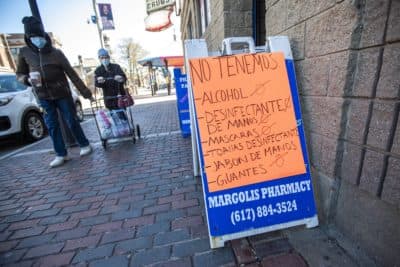 NO TENEMOS
-ALCOHOL
-DESINFECTANTE
DE MANOS
-MASCARAS
-TOALLAS DESINFECTANTE
-JABON DE MANOS
-GUANTES
MARGOLIS PHARMACY
(617) 884-3524